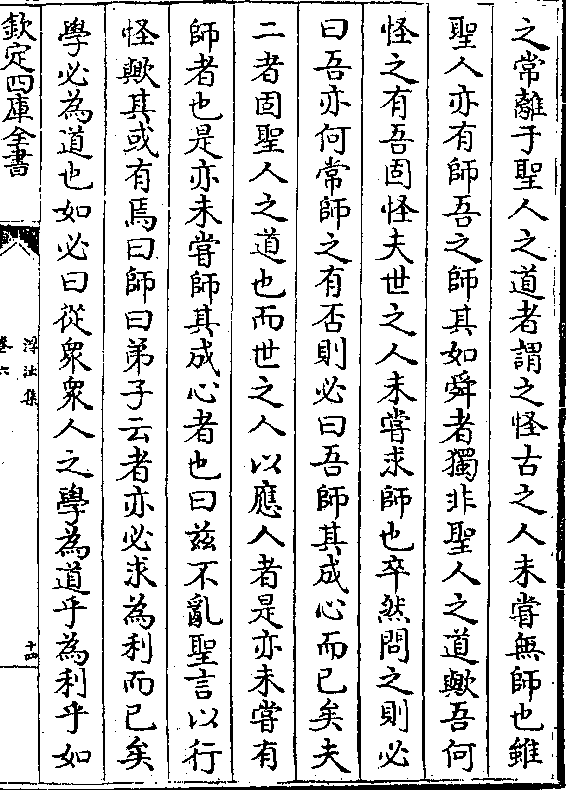 之常離于聖人之道者謂之怪古之人未嘗無師也雖
聖人亦有師吾之師其如舜者獨非聖人之道歟吾何
怪之有吾固怪夫世之人未嘗求師也卒然問之則必
曰吾亦何常師之有否則必曰吾師其成心而已矣夫
二者固聖人之道也而世之人以應人者是亦未嘗有
師者也是亦未嘗師其成心者也曰兹不亂聖言以行
怪歟其或有焉曰師曰弟子云者亦必求為利而已矣
學必為道也如必曰從衆衆人之學為道乎為利乎如
欽定四庫全書
浮沚集
卷六
十四